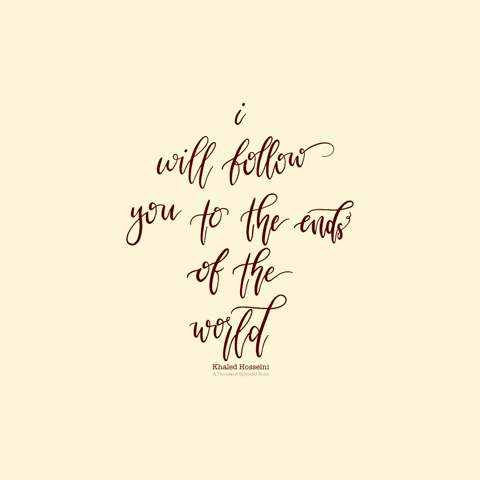 i
will follow
you to the ends
of the
world
Khaled Hosseini
A Thousand Splendid Suns